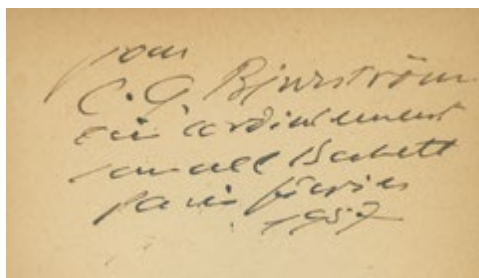 pour
C. G. Bjurström
bien cordialement
Samuel Beckett
Paris février
1957